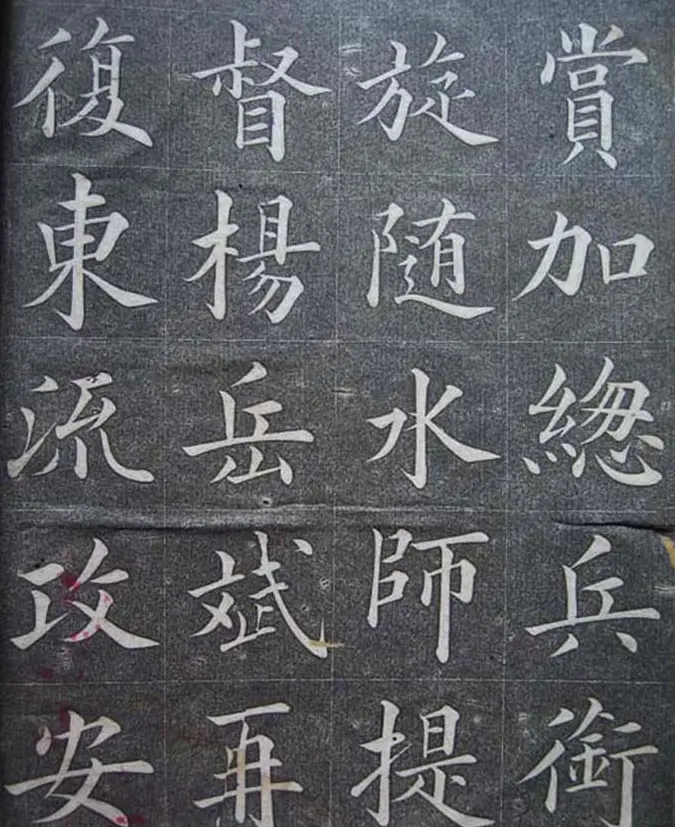 賞加緫兵銜
旋随水師提
督楊岳斌再
復東流攻安